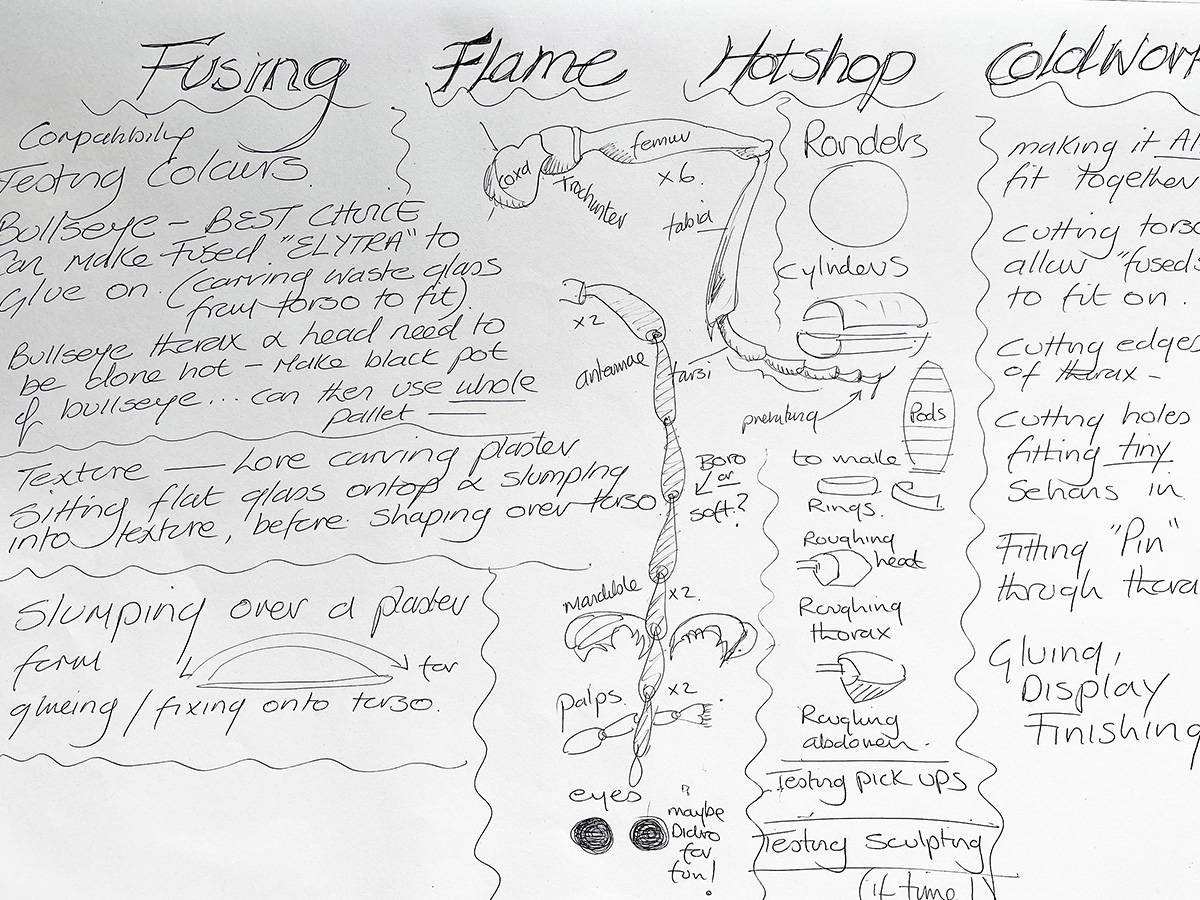 Fusing
Compatibility
Testing Colours.
Bullseye - BEST CHOICE
Can make fused "ELYTRA" to
Glue on. (carving waste glass
from torso to fit).
Bullseye thorax & head need to
be done hot - Make black pot
of bullseye... can then use whole
pallet
Texture — Love carving plaster
Sitting flat glass ontop & slumping
into texture, before shaping over torso.
Slumping over a plaster
form
for
glueing / fixing onto torso.
Flame
coxa
trochunter
femur
x6.
tabia
tarsi
x2
antennae
Boro
or
soft?
mandible
x2.
palps.
x2
eyes
maybe
Dichro
for
fun!
Hotshop
Rondels
Cylinders
Pods
to make
Rings.
Roughing
head
Roughing
thorax
Roughing
abdomen.
Testing pick ups
Testing sculpting
(if time!)
Coldwork
making it
fit together
cutting torso
allow "fuseds
to fit on.
cutting edges
of thorax -
cutting holes
fitting tiny
in
Fitting "Pin"
through thora
Gluing,
Display
Finishing